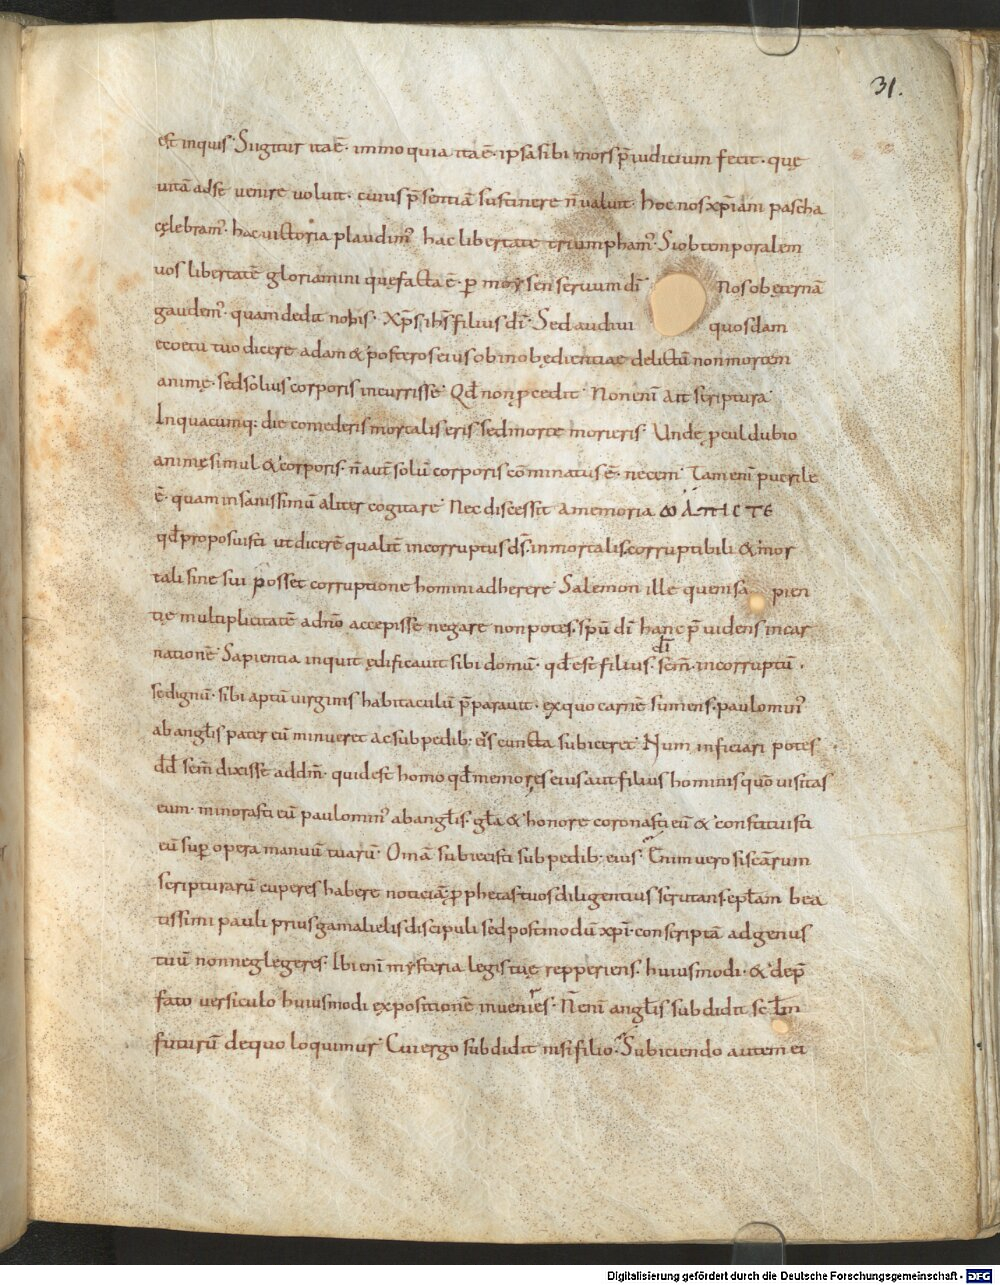 31.
est inquis. Si igitur ita ē. immo quia ita ē. ipsa sibi mors p̄iudicium fecit. quę
vitā ad se venire voluit. cuius p̄sentiā sustinere n̄ valuit. hoc nos xp̄iani pascha
cęlebram᾽. hac victoria plaudim᾽ hac libertate triumpham᾽. Si ob temporalem
vos libertatē gloriamini quę facta ē. p̱ moẏsen servum dī Nos ob ęternā
gaudem᾽. quam dedit nobis. Xp̄s ih̄s filius dī. Sed audivi quosdam
e coetu tuo dicere adam & posteros eius ob inobędientiae delictū non mortem
animę. sed solius corporis incurrisse. Qđ non p̱cedit. Non enī ait scriptura
In quacumq; die comederis mortalis eris. sed morte morieris. Unde p̱cul dubio
animę simul & corporis. n̄ aut̄ solū corporis cōminatus ē. necem. Tam enī puerile
ē. quam insanissimū aliter cogitare. Nec discessit a memoria ω ἀπιϲτε
qđ proposuisti ut dicerē qualit̄ incorruptus d̄s. inmortalis. corruptibili & mor
tali sine sui posset corruptione homini adherere. Salemon ille quem sa pien
tię multiplicitatē a dn̄o accepisse negare non potes. sp̄u dī hanc p̄videns incar
nationē. Sapientia inquit ędificavit sibi domū. qđ est filius. dī sem̄. incorruptū.
sę dignū. sibi aptū virginis habitaculū p̄paravit. ex quo carnē sumens. paulo min᾽
ab angłis pater eū minueret ac sub pedib; ei᾽s cuncta subiceret. Num inficiari potes
dđ sem̄ dixisse ad dm̄. quid est homo qđ memor ęs eius aut filius hominis quō visitas
eum. minorasti eū paulo min᾽ ab angłis. gła & honore coronasti eū & constituisti
eū sup̱ opera manuū tuarū. Om̄a subiecisti sub pedib; eius. Enim vero si scārum
scripturarū cuperes habere noticiā. p̱phetas tuos diligentius scrutans. epłam bea
tissimi pauli prius gamalielis discipuli sed postmodū xp̄i. conscriptā ad genus
tuū non neglegeres. Ibi enī mẏsteria legis tuę repperiens. huiusmodi. & de p̄
fato versiculo huiusmodi expositionē invenires. N̄ enī angłis subdidit sc̄łm
futurū de quo loquimur. Cui ergo subdidit nisi filio. Subiciendo autem ei
Digitalisierung gefördert durch die Deutsche Forschungsgemeinschaft - DFG